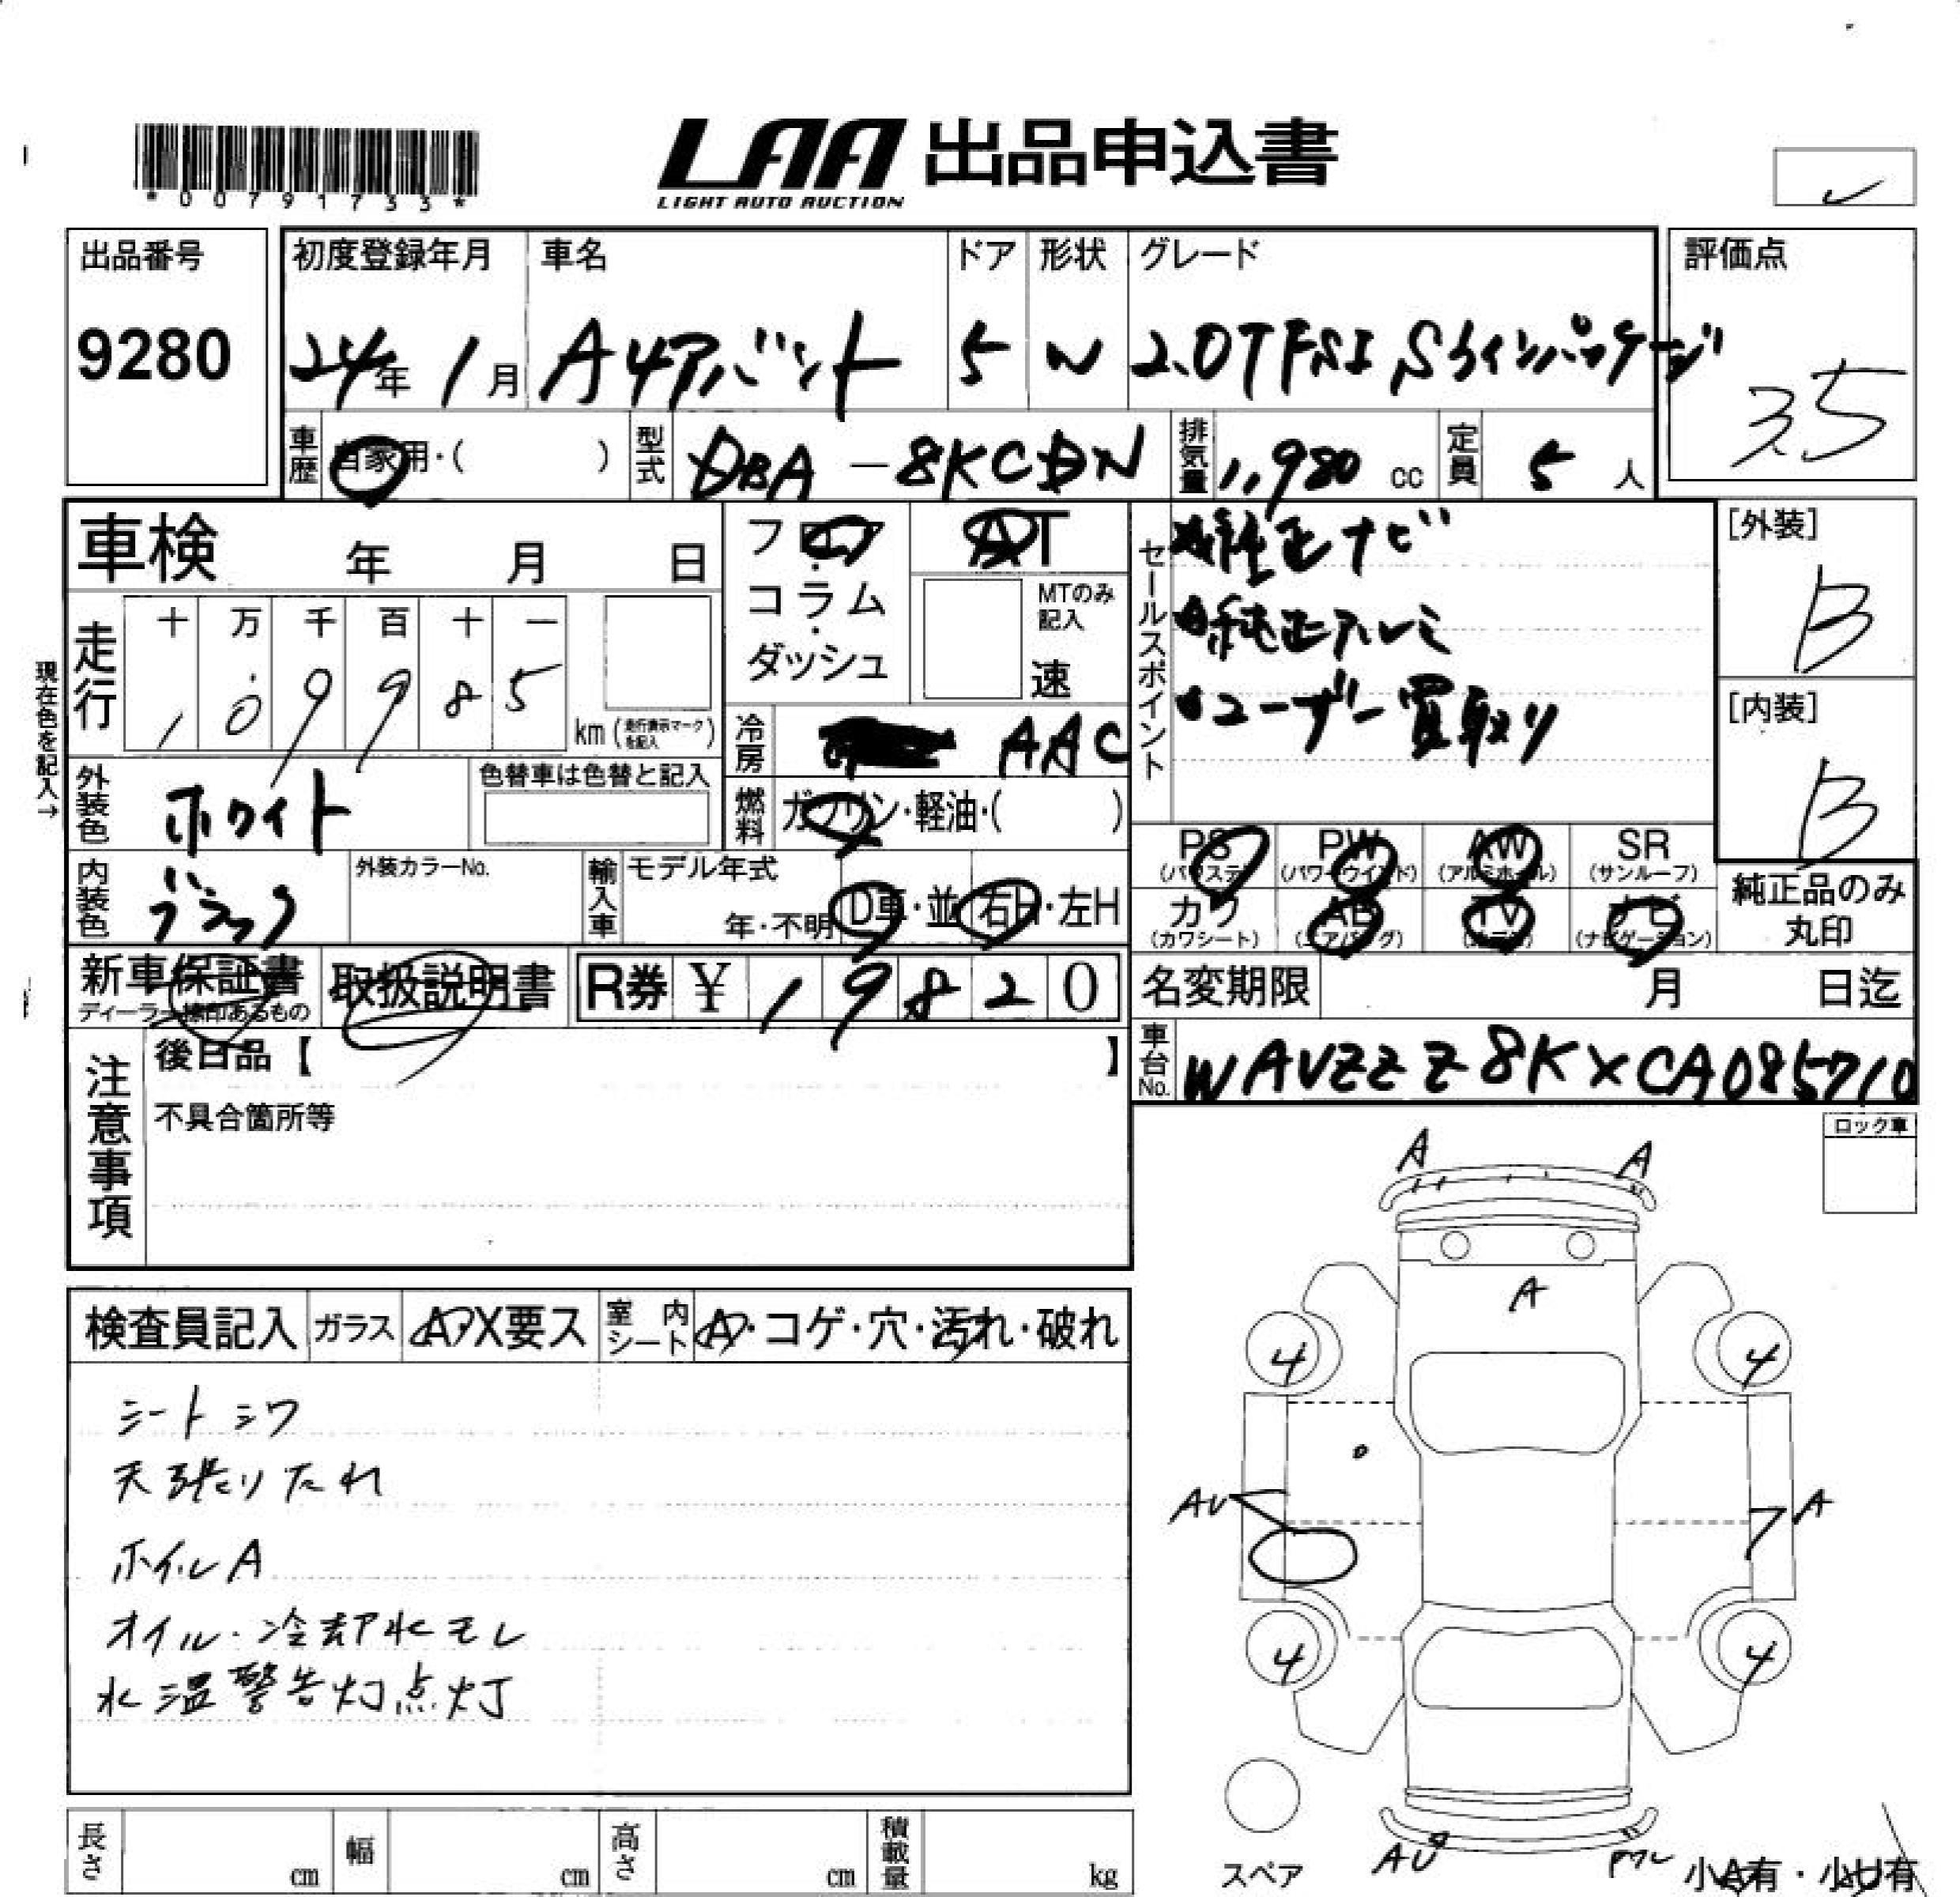 *00791733*
LAA 出品申込書
LIGHT AUTO AUCTION
出品番号
9280
初度登録年月
24年 1月
車名
A4アバント
ドア
5
形状
W
グレード
2.0TFSI Sラインパッケージ
評価点
3.5
車歴 自家用・( )
型式 DBA-8KCDN
排気量 1,980 cc
定員 5 人
車検 年 月 日
フロア・コラム・ダッシュ
AT
MTのみ記入
速
セールスポイント
純正ナビ
純正アルミ
ユーザー買取り
[外装]
B
[内装]
B
現在色を記入→
走行 十 万 千 百 十 一
1 0 9 9 8 5
km (走行表示マークを記入)
冷房 AAC
外装色 ホワイト
色替車は色替と記入
燃料 ガソリン・軽油・( )
PS (パワステ) PW (パワーウインド) AW (アルミホイール) SR (サンルーフ)
カワ (カワシート) AB (エアバッグ) TV (テレビ) ナビ (ナビゲーション)
純正品のみ丸印
内装色 ブラック
外装カラーNo.
輸入車 モデル年式
年・不明 D車・並 右H・左H
新車保証書
ディーラー捺印あるもの
取扱説明書
R券 ¥ 1 9 8 2 0
名変期限 月 日迄
車台No. WAVZZZ8KXCA085710
注意事項
後日品【 】
不具合箇所等
ロック車
検査員記入 ガラス A・X要ス 室内シート A・コゲ・穴・汚れ・破れ
シートシワ
天張りたれ
ホイルA
オイル・冷却水モレ
水温警告灯点灯
A A
A
4 4
AU A
4 4
スペア
AU
小A有・小U有
長さ cm 幅 cm 高さ cm 積載量 kg